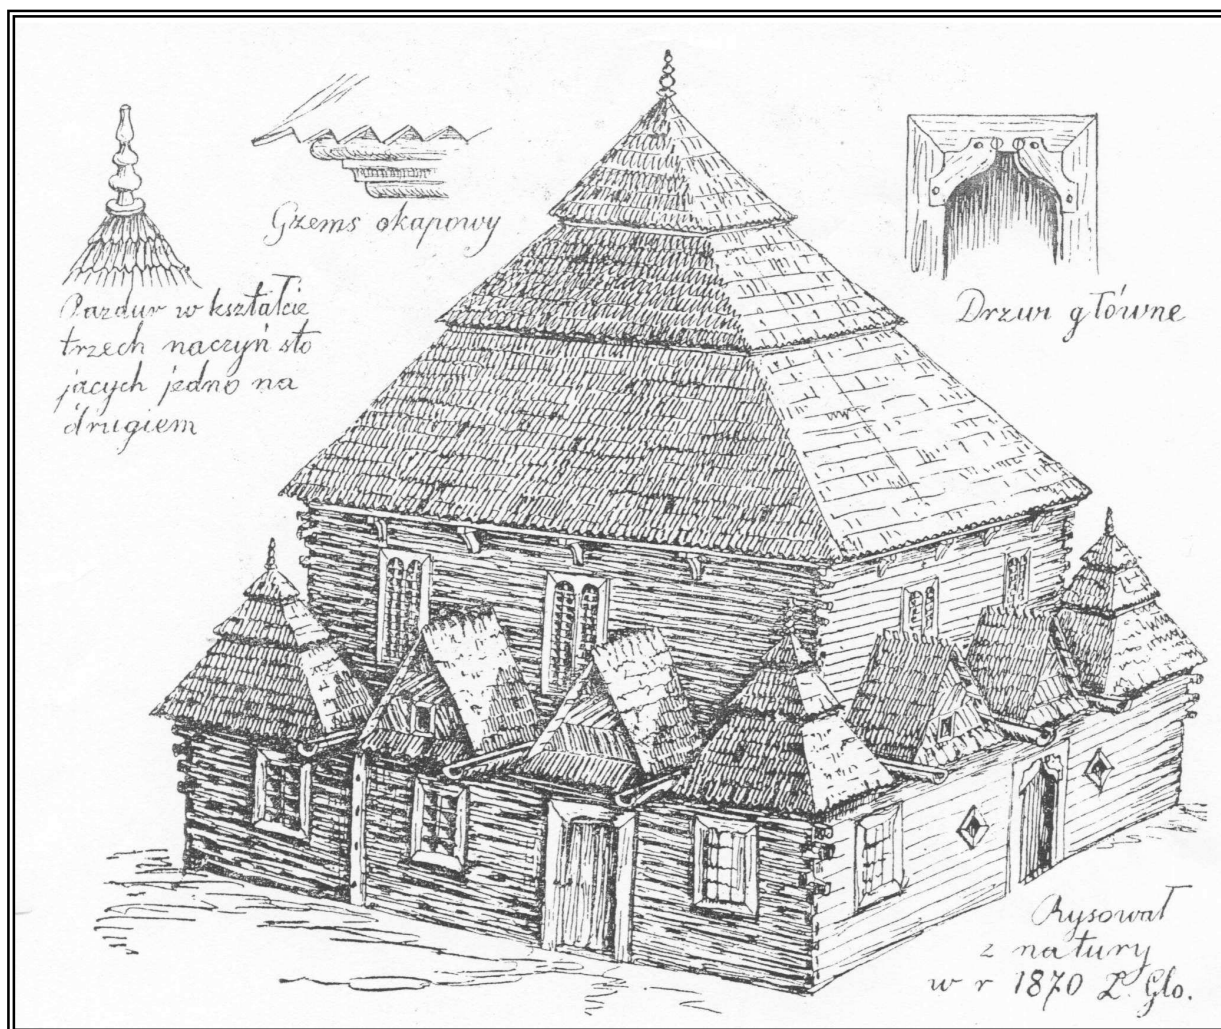 Gzems okapowy
Pazdur w kształcie
trzech naczyń sto
jacych jedno na
drugiem
Drzwi główne
Rysował
z natury
w r 1870 Z. Glo.